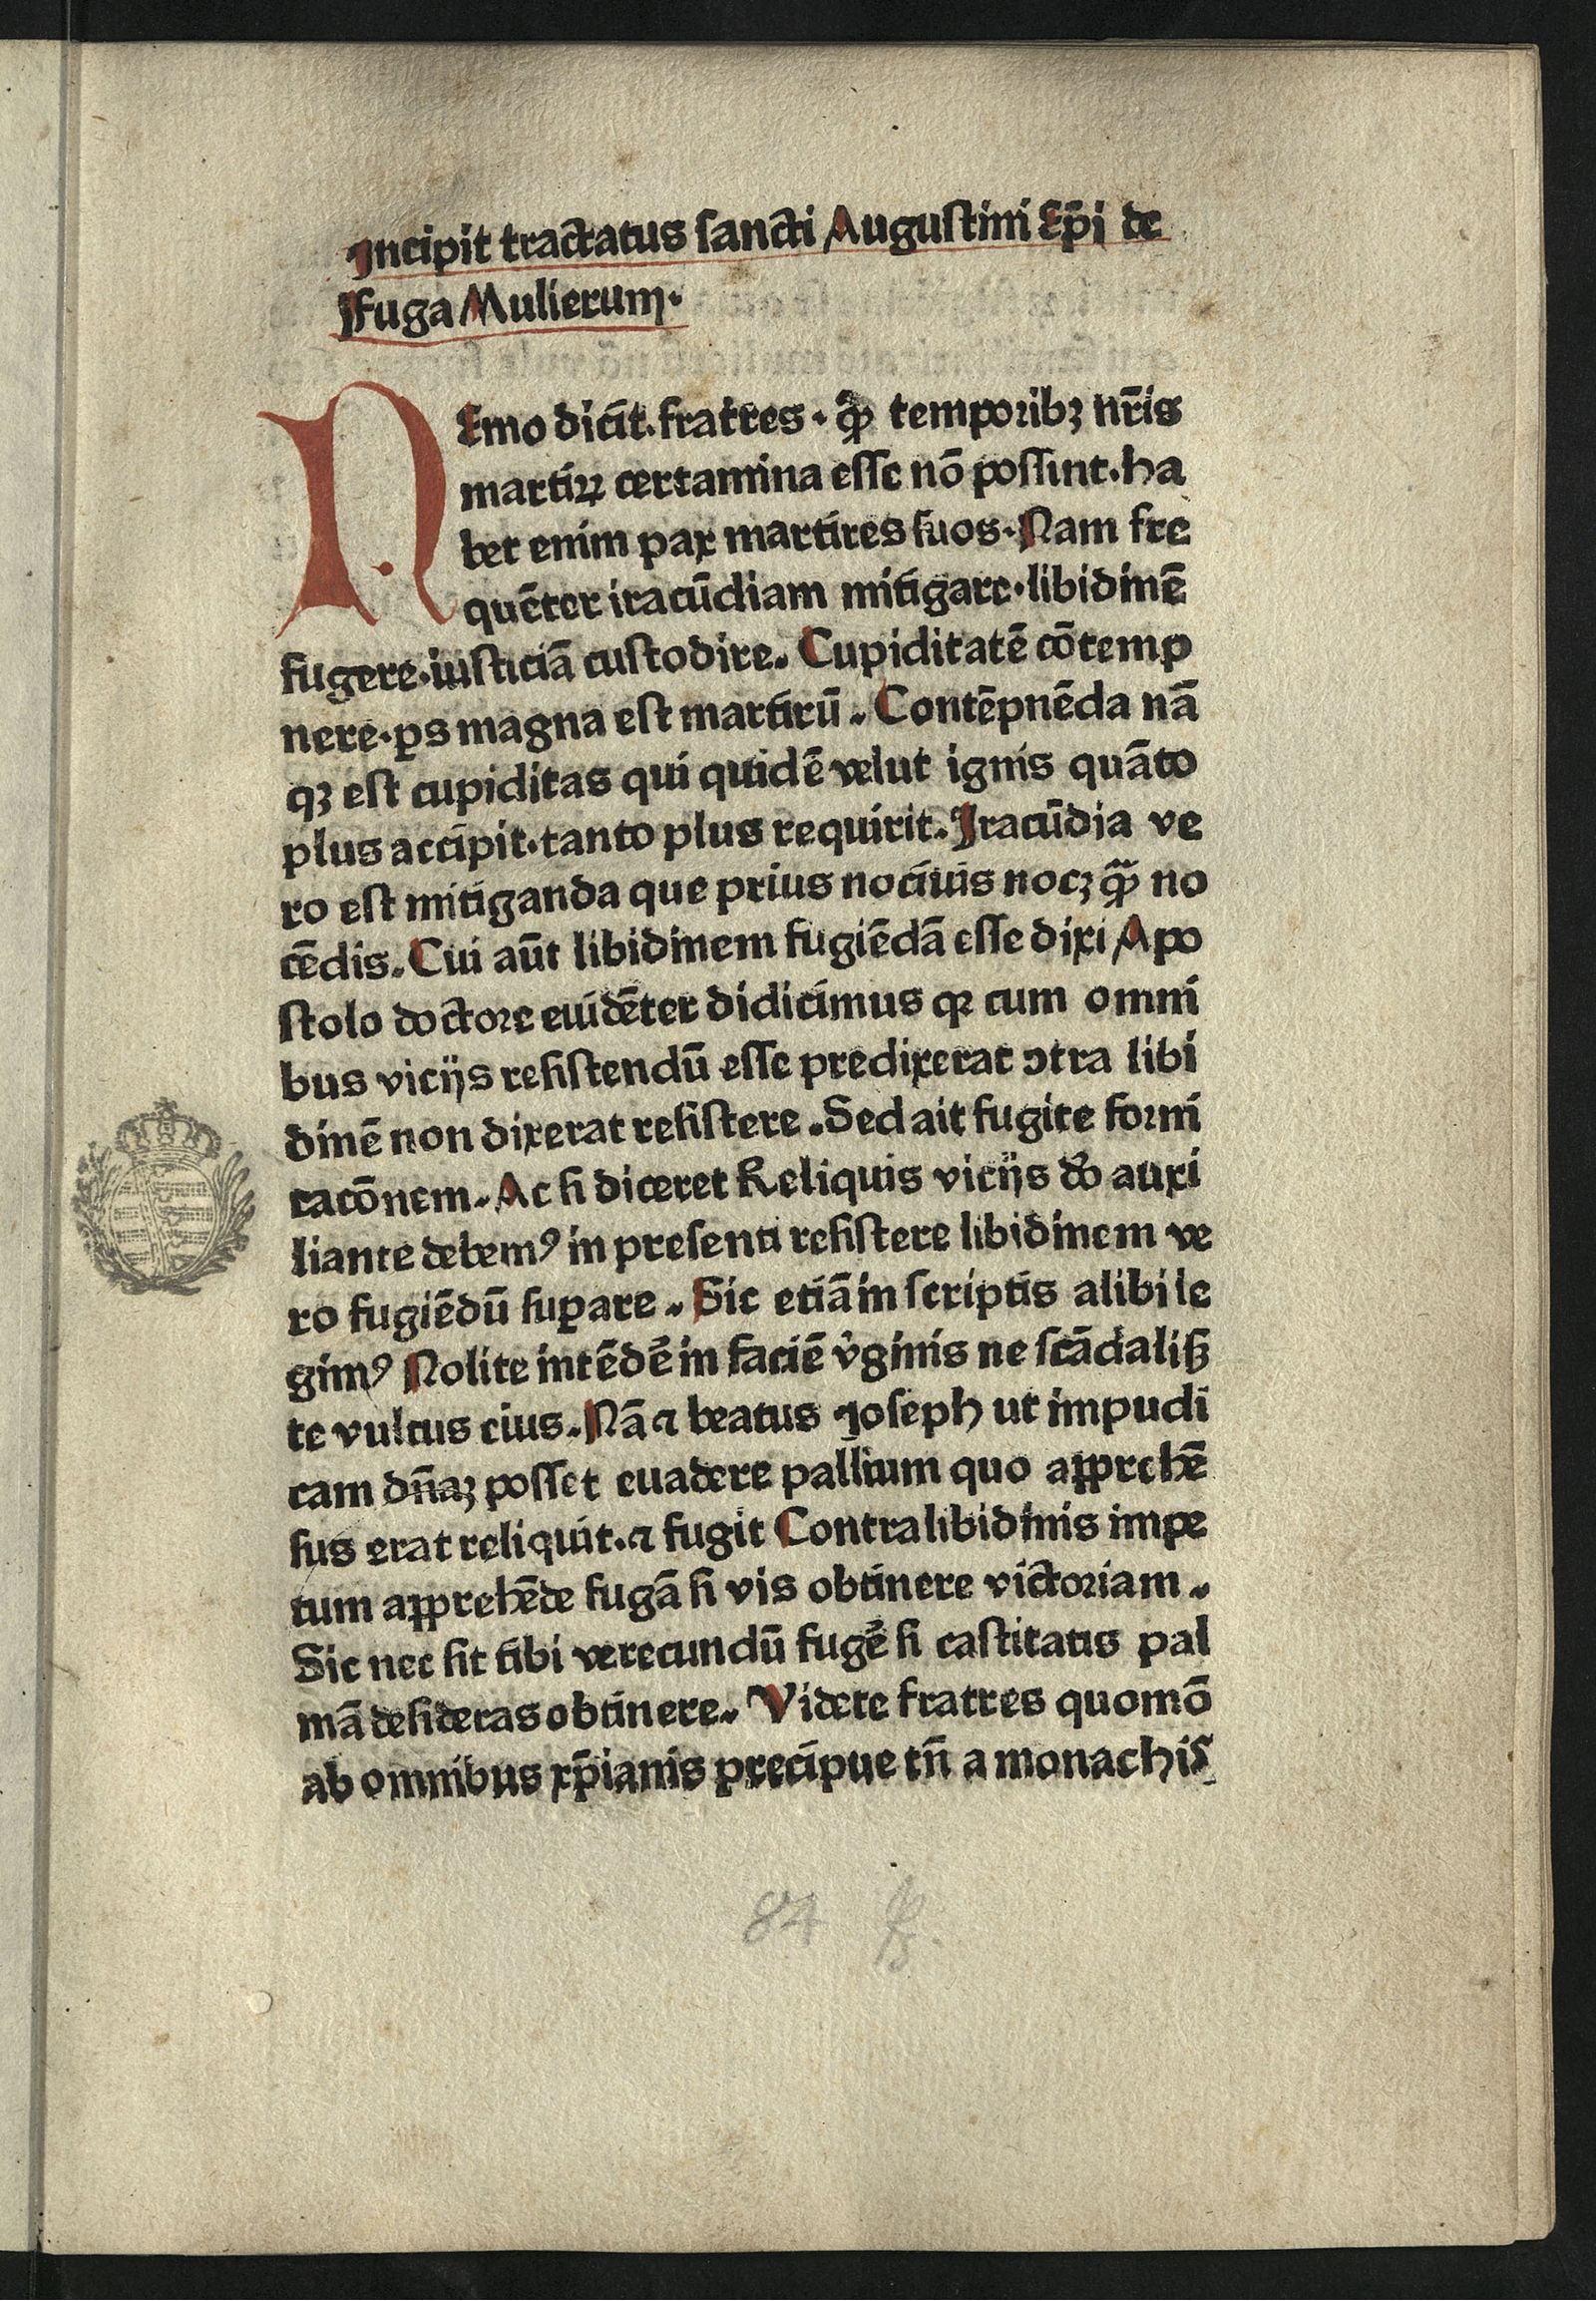 Incipit tractatus sancti Augustini Ep̄i de
Fuga Mulierum·
NEmo dicit. fratres · ꝙ̄ temporibꝫ nr̄is
martiꝝ certamina esse nō possint. ha
bet enim pax martires suos· Nam fre
quēter iracūdiam mitigare·libidinē
fugere·iusticiā custodire. Cupiditatē cōtemp
nere·ꝑs magna est martirū. Contēpnēda nā
qꝫ est cupiditas qui quidē velut ignis quāto
plus accipit·tanto plus requirit. Iracūdia ve
ro est mitiganda que prius nociuis nocꝫ ꝙ̄ no
cēdis. Cui aūt libidinem fugiēdā esse dixi Apo
stolo doctore euidēter didicimus qꝛ cum omni
bus vicijs resistendū esse predixerat ɔtra libi
dinē non dixerat resistere. Sed ait fugite forni
cacōnem. Ac si diceret Reliquis vicijs do auxi
liante debemꝰ in presenti resistere libidinem ve
ro fugiēdū suꝑare. Sic etiā in scriptis alibi le
gimꝰ Nolite intēdē in faciē v̓ginis ne scādaliꝫ
te vultus eius. Nā ⁊ beatus Joseph ut impudi
cam dn̄aꝫ posset euadere pallium quo apprehē
sus erat reliquit. ⁊ fugit Contra libidinis impe
tum apprehēde fugā si vis obtinere victoriam.
Sic nec sit tibi verecundū fugē si castitatis pal
mā desideras obtinere. Videte fratres quomō
ab omnibus xp̄ianis precipue tn̄ a monachis
84